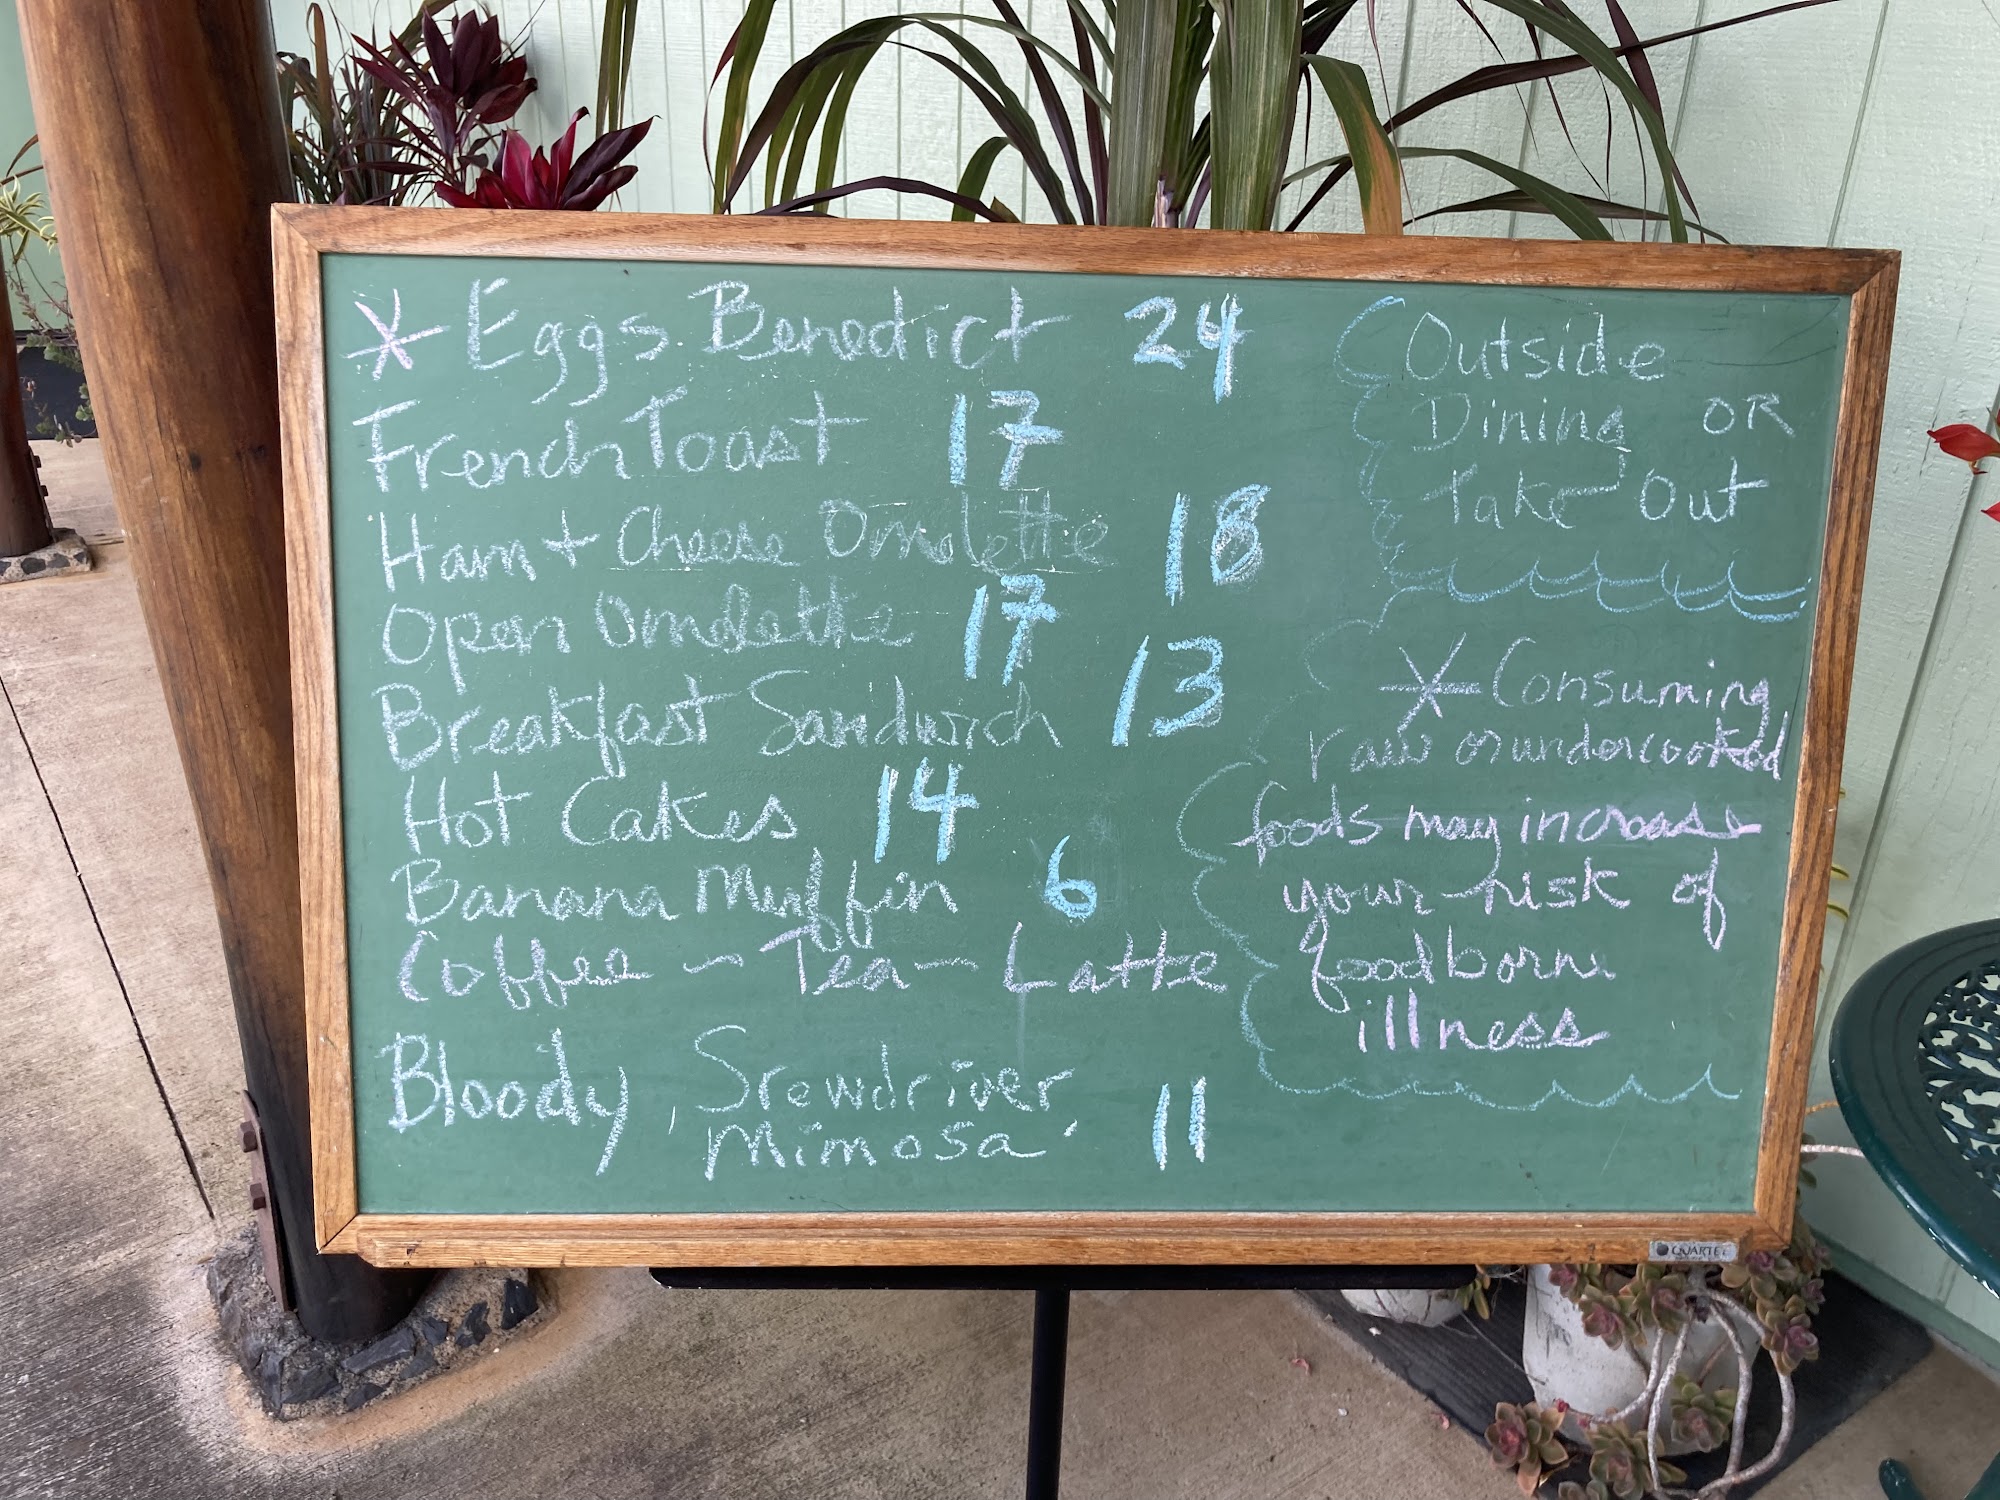 * Eggs Benedict 24
French Toast 17
Ham + Cheese Omelette 18
Open Omelette 17
Breakfast Sandwich 13
Hot Cakes 14
Banana Muffin 6
Coffee ~ Tea ~ Latte
Bloody, Srewdriver
Mimosa 11
Outside
Dining OR
Take Out
* Consuming
raw or undercooked
foods may increase
your risk of
foodborne
illness
QUARTET